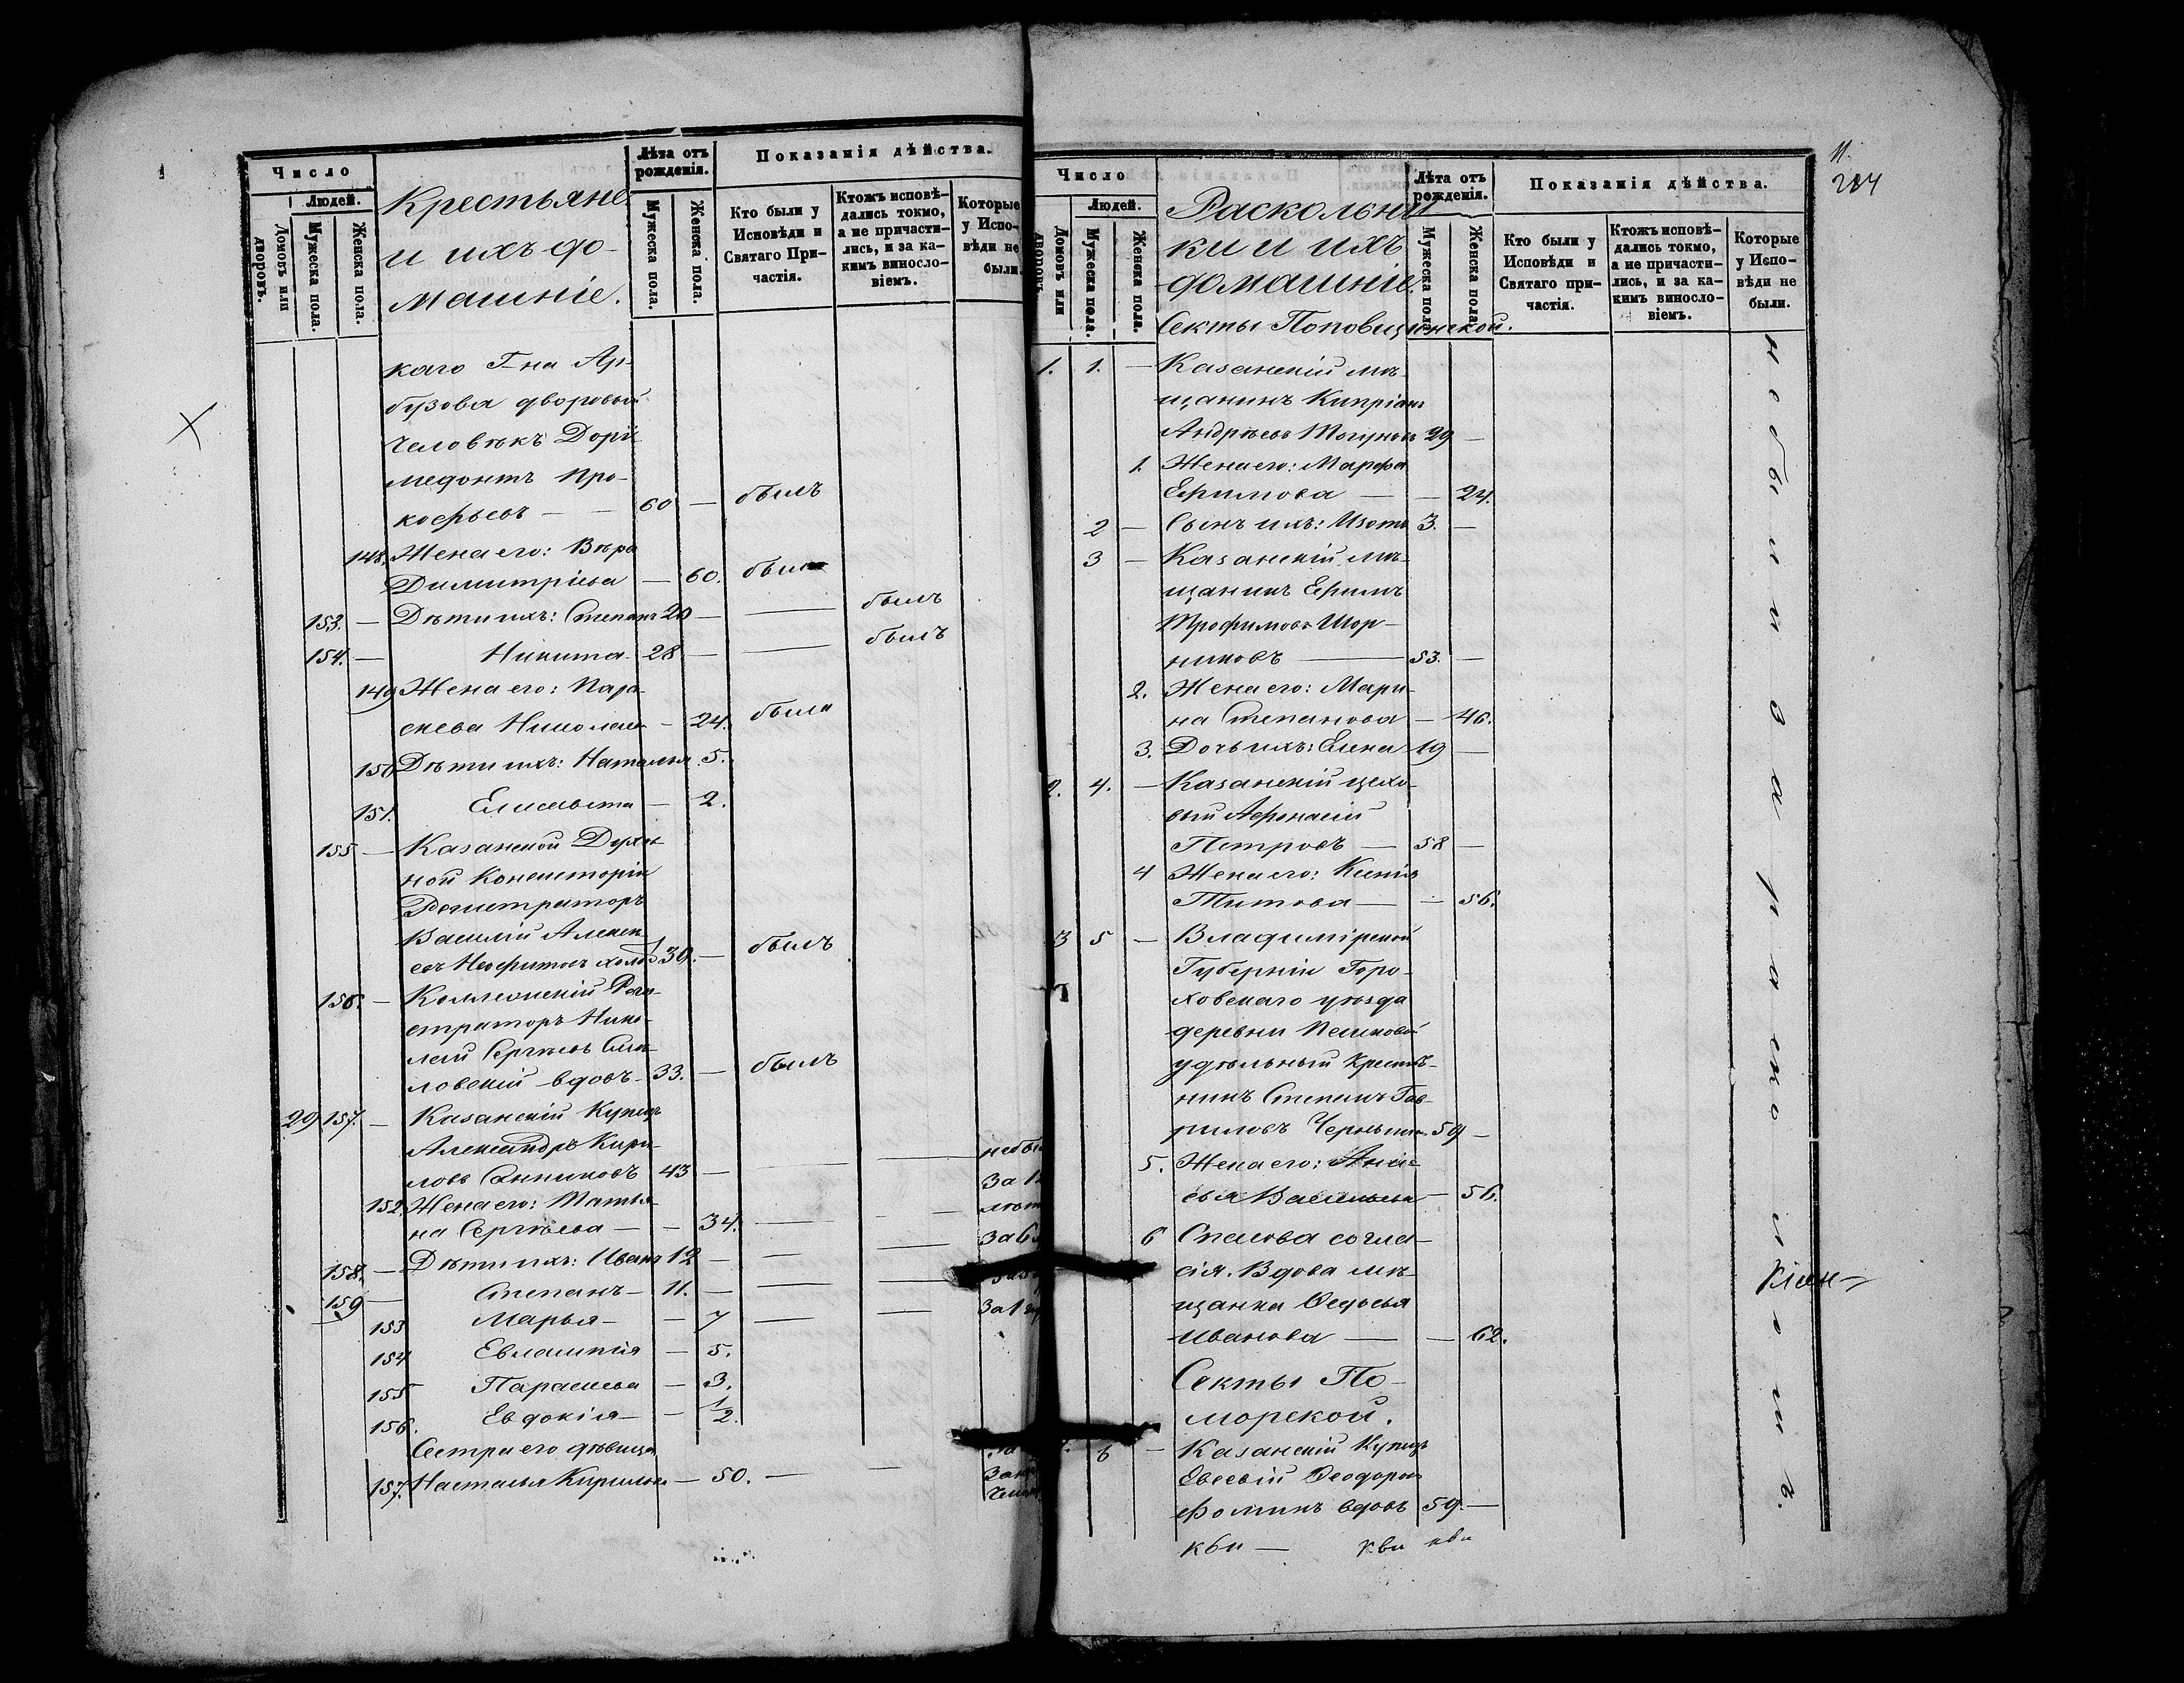 Число
Людей.
Домовъ или дворовъ.
Мужеска пола.
Женска пола.
Крестьяне
и ихъ до-
машніе.
Лѣта отъ рожденія.
Мужеска пола.
Женска пола.
Показанія дѣйства.
Кто были у Исповѣди и Святаго При-частія.
Ктожъ исповѣ-дались токмо, а не причасти-лись, и за ка-кимъ винословіемъ.
Которые у Испо-вѣди не были.
каго Г-на Ар-
бузова дворовый
человѣкъ Дори
медонтъ Про-
кофьевъ — 60 — былъ
148. Жена его: Вѣра
Димитріева — 60. была
153. — Дѣти ихъ: Степанъ 20 — — былъ
154. — Никита 28 — — былъ
149 Жена его: Пара-
скева Николаева — 24. была
150 Дѣти ихъ: Наталья 5.
151. Елисавета — 2.
155 — Казанской Духов
ной Консисторіи
Регистраторъ
Василій Алексѣ
евъ Неофитовъ холос 30. — былъ
156. — Коллежскій Реги-
страторъ Нико-
лай Сергѣевъ
ловскій вдовъ — 33. — былъ
29 157. — Казанскій Купецъ
Александръ Кири-
ловъ Санниковъ 43 — — — небы
152. Жена его: Татья-
на Сергѣева — — 34. — — За 6
158. — Дѣти ихъ: Иванъ 12 — — —
159 — Степанъ — 11. — — —
153 Марья — — 7 — — За 1
154 Евлампія — 5.
155 Параскева — 3.
156. Евдокія — — 1/2.
Сестра его дѣвица
157. Настасья Кирилова — 50. — —
11.
204
Число
Людей.
Домовъ или дворовъ.
Мужеска пола.
Женска пола.
Раскольни
ки и ихъ
домашніе.
Лѣта отъ рожденія.
Мужеска пола.
Женска пола.
Показанія дѣйства.
Кто были у Исповѣди и Святаго при-частія.
Ктожъ исповѣ-дались токмо, а не причасти-лись, и за ка-кимъ винословіемъ.
Которые у Испо-вѣди не были.
Секты Поповщинской.
1. 1. — Казанскій мѣ-
щанинъ Кипріанъ
Андрѣевъ 29 —
1. Жена его: Марфа
Ефимова — — 24.
2 — Сынъ ихъ: Изотъ 3. —
3 — Казанскій мѣ-
щанинъ Ефимъ
Трофимовъ Шор-
никовъ — 53. —
2. Жена его: Мари-
на Степанова — 46.
3. Дочь ихъ: Елена 19 —
2. 4. — Казанскій цехо-
вый Афонасій
Петровъ — 58 —
4 Жена его: Ксенія
Титова — — 56.
3 5 — Владимірской
Губерніи Горо-
ховскаго уѣзда
деревни
удѣльный крестья-
нинъ Степанъ Гав-
риловъ 59 —
5. Жена его: Анис-
сья Васильева — 56.
6 Спасова согла-
сія. Вдова мѣ-
щанка Ѳедосья
Иванова — — 62.
Секты По-
морской.
6 — Казанскій Купецъ
Евсевій Ѳеодоровъ
Фоминъ вдовъ 59. —
не были за расколомъ.